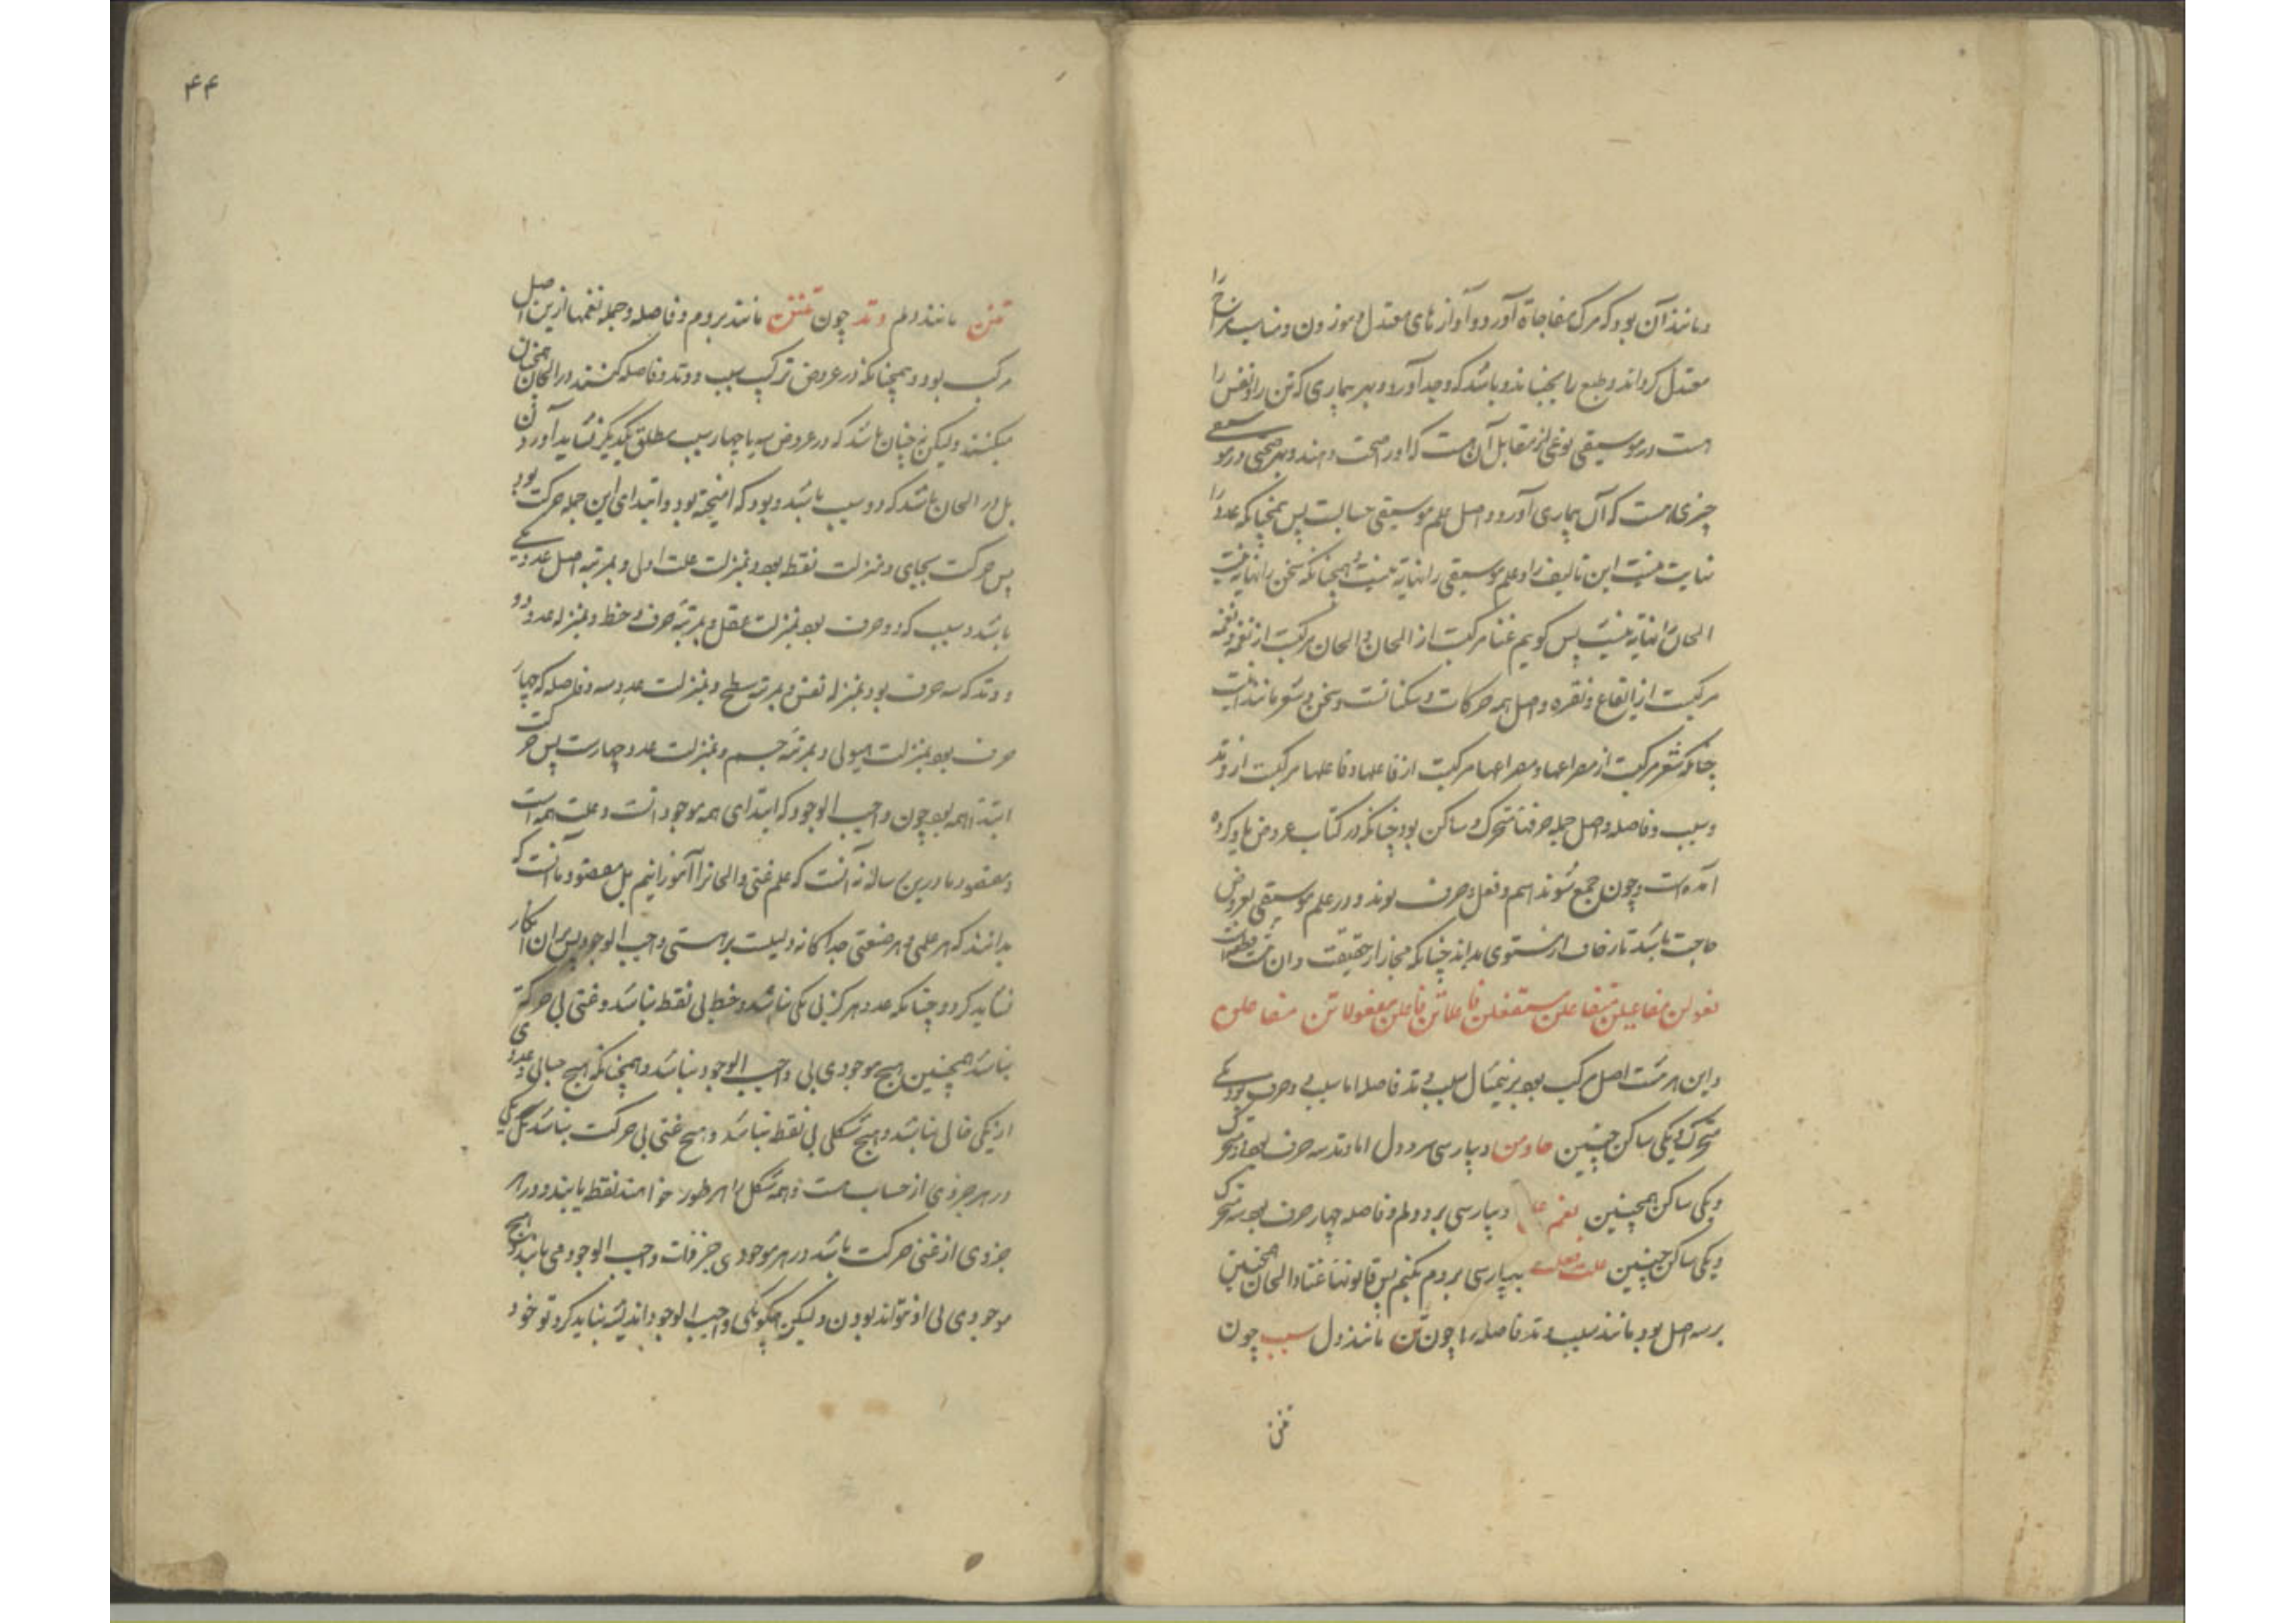 و مانند آن بود که مرگ مفاجاة آورد و آوازهای معتدل و موزون و متناسب مزاج را
معتدل کرداند و طبع را بجنباند و باشد که وجد آورد و بهر بیماری که تن را و نفس را
هست در موسیقی نوعی از مقابل آن هست که او را صحت دهند و بهر صحتی در موسیقی
چیزی هست که آن بیماری آورد و اصل علم موسیقی حسابست پس همچنانکه عدد را
نهایت نیست این تالیف را و علم موسیقی را نهایة نیست و همچنانکه سخن را نهایة نیست
الحان را نهایة نیست پس کویم غنا مرکبت از الحان و الحان مرکبت از نغمه و نغمه
مرکبت از ایقاع و نقره و اصل همه حرکات و سکناتست و سخن و شعر مانند اینست
چنانکه شعر مرکبت از مصراعها و مصراعها مرکبت از فاعلها و فاعلها مرکبت از وتد
و سبب و فاصله و اصل جمله حرفهاء متحرک و ساکن بود چنانکه در کتاب عروض یاد کرده
آمده است و چون جمع شوند اسم و فعل و حرف بوند و در علم موسیقی بعروض
حاجت باشد تا زحاف از مستوی بداند چنانکه مجاز از حقیقت و ان هشت
فعولن مفاعیلن متفاعلن مستفعلن فاعلاتن فاعلن مفعولاتن مفاعلن
و این هر هشت اصل مرکب بود برین مثال سبب و وتد فاصله اما سبب دو حرف بود یکی
متحرک و یکی ساکن چنین ها و من و بپارسی سر و دل اما وتد سه حرف بود دو متحرک
و یکی ساکن همچنین نعم و بپارسی برو و لم و فاصله چهار حرف بود سه متحرک
و یکی ساکن چنین بپارسی بردم بکنم پس قانونهاء غنا و الحان همچنین
بر سه اصل بود مانند سبب و وتد فاصله را چون تن مانند دل سبب چون
تنن
۴۴
تنن مانند دلم وتد چون تننن مانند بردم و فاصله و جمله نغمها ازین اصل
مرکب بود و همچنانکه در عروض ترکیب سبب و وتد و فاصله کنند در الحان همچنان
میکنند ولیکن نه چنان باشد که در عروض سه یا چهار سبب مطلق بیکدیگر نشاید آوردن
بل در الحان باشد که دو سبب باشد و بود که آمیخته بود و ابتدای این جمله حرکت بود
پس حرکت بجای و منزلت نقطه بود و بمنزلت علت اول و بمرتبه اصل عدد یکی
باشد و سبب که دو حرف بود بمنزلت عقل و بمرتبه حرف و خط و بمنزله عدد دو
و وتد که سه حرف بود بمنزله نفس و بمرتبه سطح و بمنزلت عدد سه و فاصله که چهار
حرف بود بمنزلت هیولی و بمرتبه جسم و بمنزلت عدد چهارست پس حرکت
ابتداء همه بود چون واجب الوجود که ابتدای همه موجوداتست و علت همه است
و مقصود ما درین رساله نه آنست که علم غنی و الحانرا آموزانیم بل مقصود ما آنست که
بدانند که هر علمی و هر صنعتی جداکانه دلیلست بر هستی واجب الوجود پس بران انکار
نشاید کرد و چنانکه عدد هرکز بی یکی نباشد و خط بی نقط نباشد و غنی بی حرکة
نباشد همچنین هیچ موجودی بی واجب الوجود نباشد و همچنانکه هیچ حسابی و عددی
از یکی خالی نباشد و هیچ شکلی بی نقط نباشد و هیچ غنی بی حرکت نباشد بل یکی
در هر جزوی از حساب هست و همه شکل را هر طور خواهند نقط یابند و در هر
جزوی از غنی حرکت باشد در هر موجودی جز ذات واجب الوجود می باشد و هیچ
موجودی بی او نتواند بودن ولیکن چکونکی واجب الوجود اندیشه نباید کرد تو خود